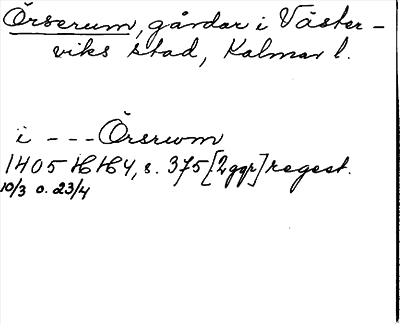 Örserum, gårdar i Väster-
viks stad, Kalmar l.
i - - - Örsrwm
1405 HH4, s. 375 [2 ggr] regest.
10/3 o. 23/4